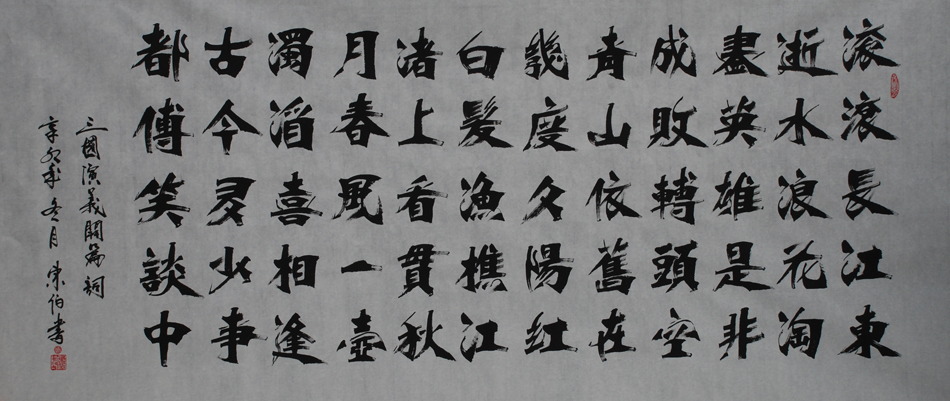 滚滚長江東
逝水浪花淘
盡英雄是非
成敗轉頭空
青山依舊在
幾度夕陽红
白髮漁樵江
渚上看貫秋
月春風一壺
濁酒喜相逢
古今多少事
都傅笑談中
三國演義開篇詞
辛卯年冬月 朱伯書